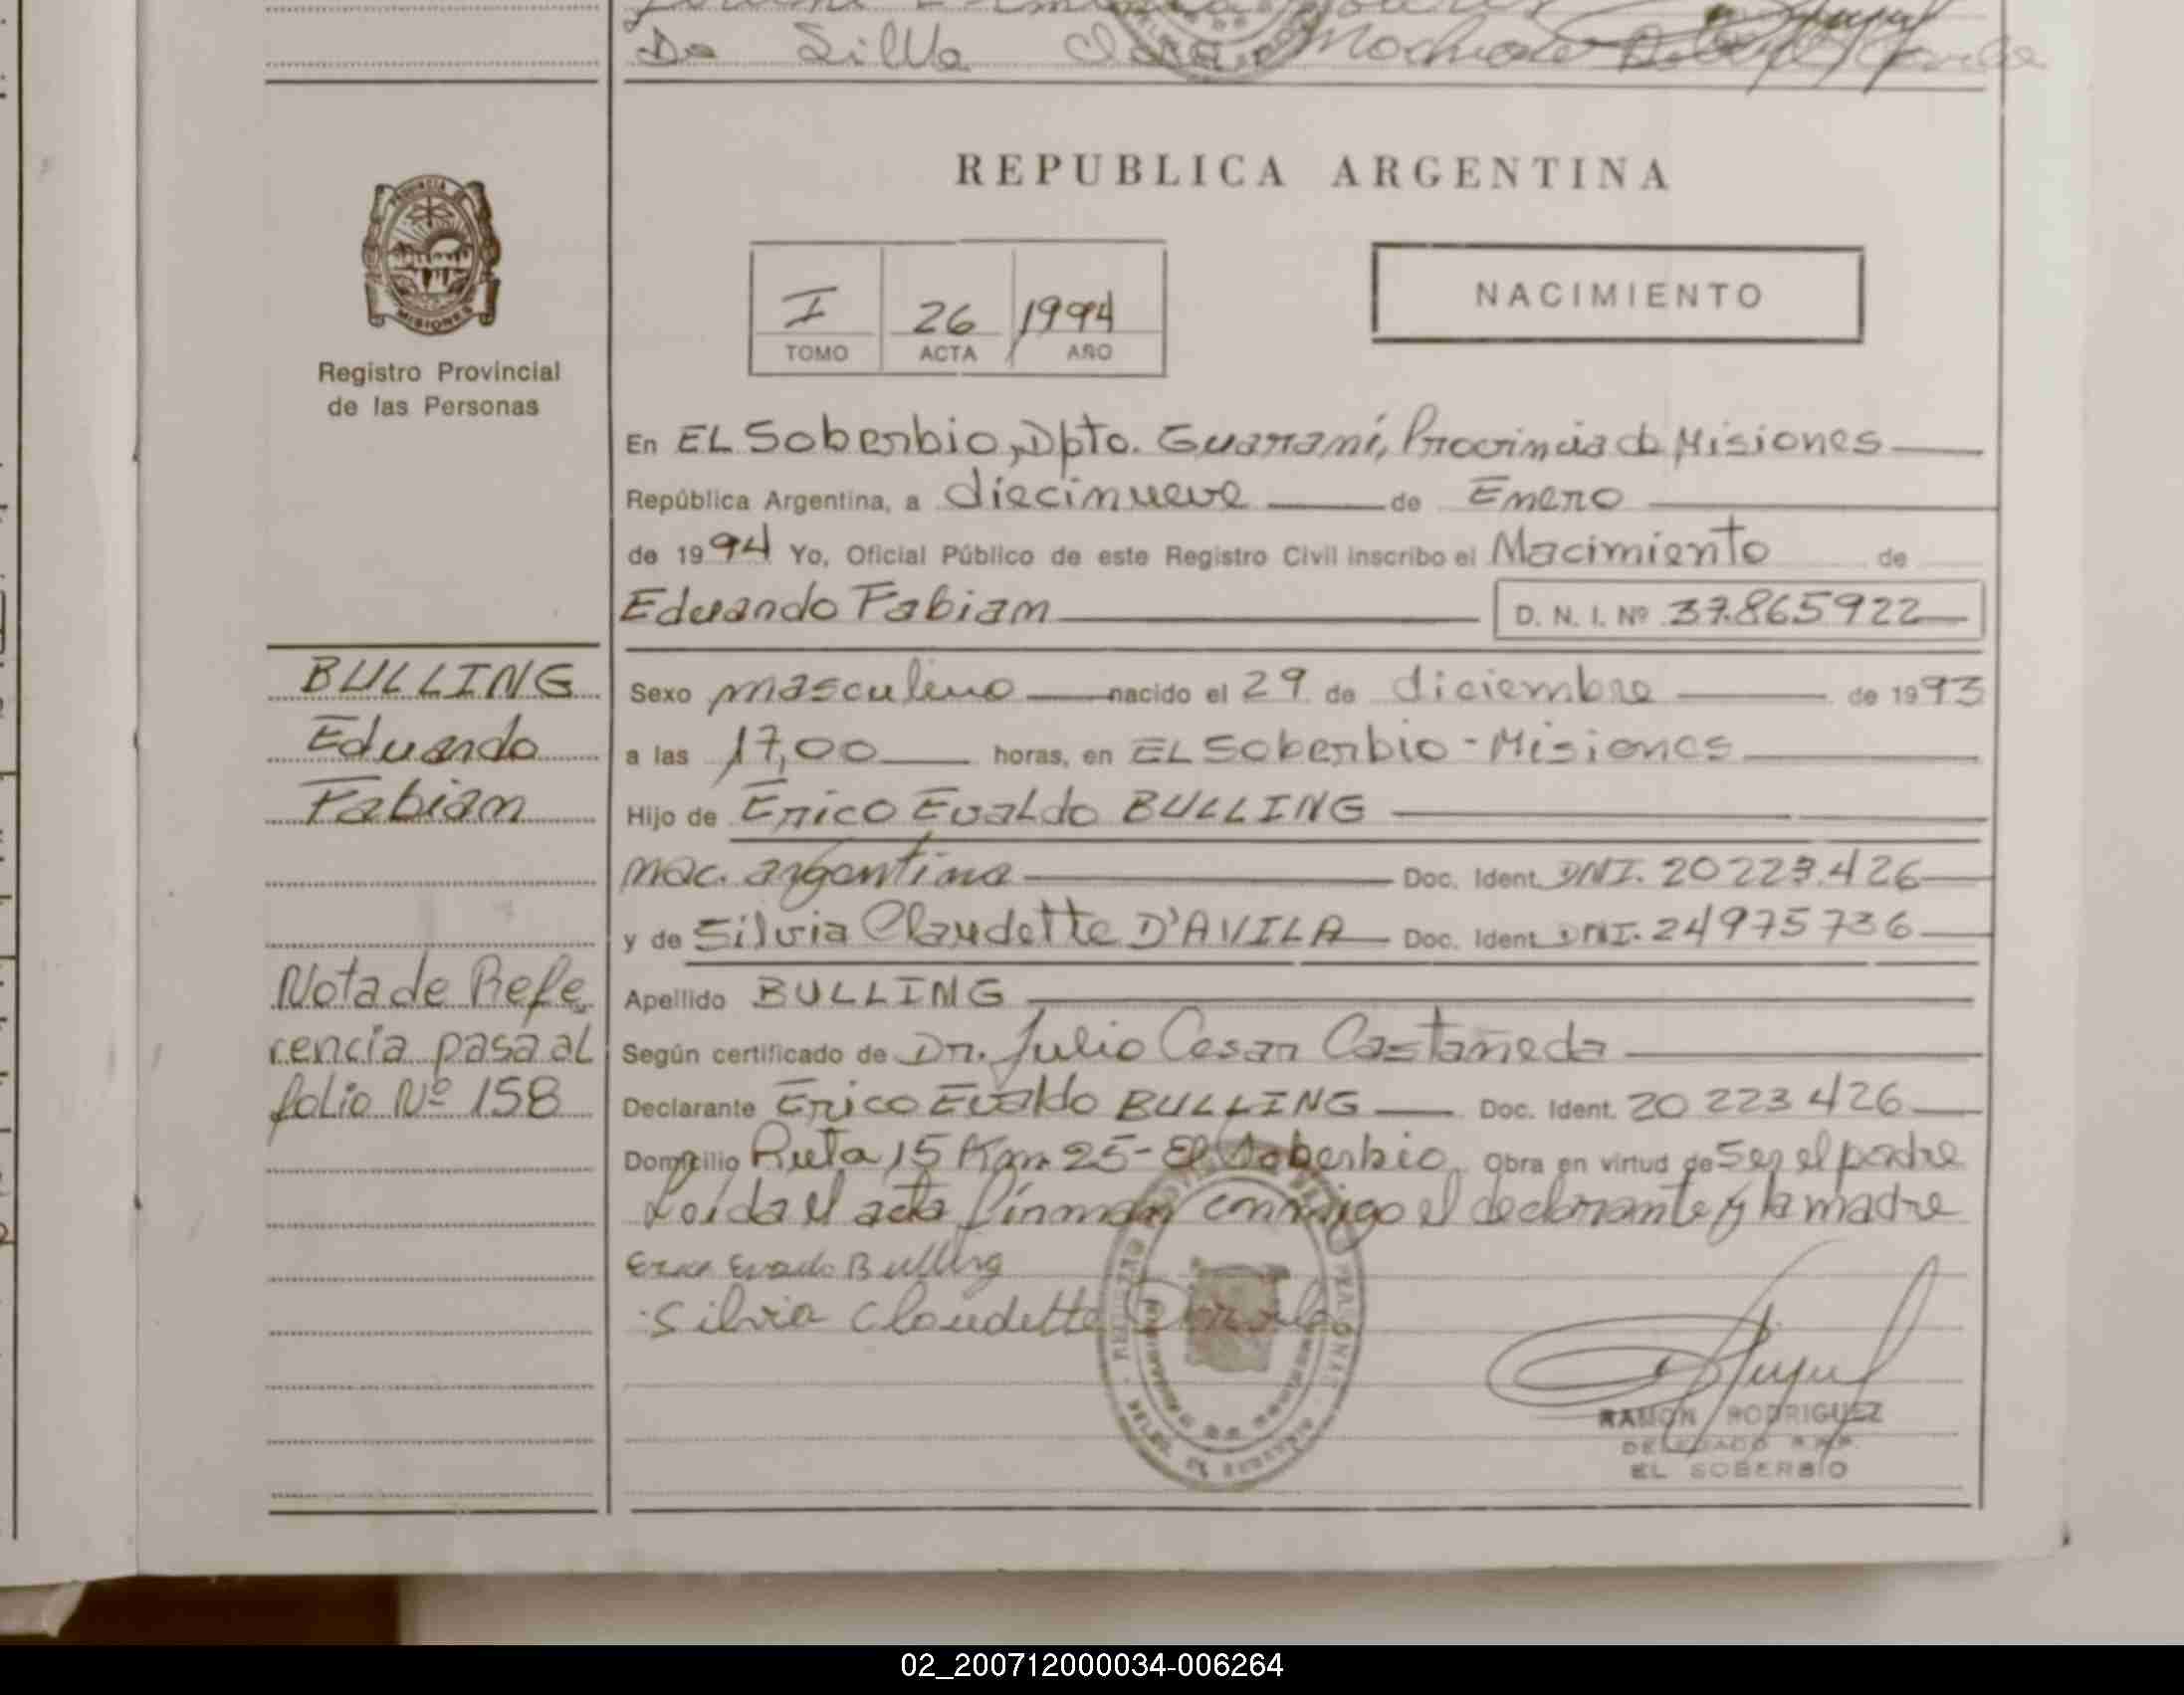 De Silva
REPUBLICA ARGENTINA
PROVINCIA DE
MISIONES
Registro Provincial
de las Personas
I 26 1994
TOMO ACTA AÑO
NACIMIENTO
En EL Soberbio, Dpto. Guaraní, Provincia de Misiones
República Argentina, a diecinueve de Enero
de 1994 Yo, Oficial Público de este Registro Civil inscribo el Nacimiento de
Eduardo Fabian D. N. I. Nº 37.865922
BULLING
Eduardo
Fabian
Sexo masculino nacido el 29 de diciembre de 1993
a las 17,00 horas, en EL Soberbio - Misiones
Hijo de Erico Evaldo BULLING
nac. argentina Doc. Ident. DNI. 20 223.426
y de Silvia Claudette D'AVILA Doc. Ident. DNI. 24975736
Apellido BULLING
Según certificado de Dr. Julio Cesar Castañeda
Declarante Erico Evaldo BULLING Doc. Ident. 20 223 426
Domicilio Ruta 15 Km 25 - El Soberbio Obra en virtud de Ser el padre
Leida el acta firman conmigo el declarante y la madre
Nota de Refe
rencia pasa al
folio Nº 158
Erico Evaldo Bulling
Silvia Claudette
RAMON RODRIGUEZ
DELEGADO R.P.P.
EL SOBERBIO
02_200712000034-006264